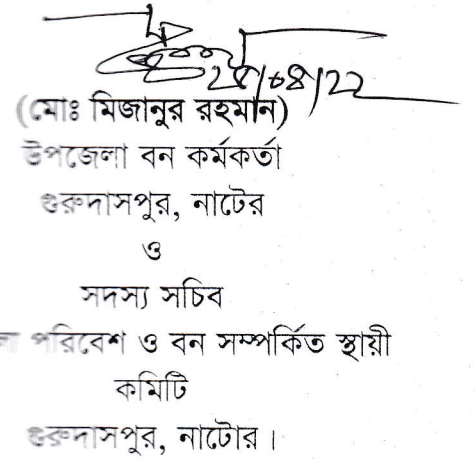 ২৪/০৪/22
(মোঃ মিজানুর রহমান)
উপজেলা বন কর্মকর্তা
গুরুদাসপুর, নাটের
ও
সদস্য সচিব
পরিবেশ ও বন সম্পর্কিত স্থায়ী
কমিটি
গুরুদাসপুর, নাটোর।